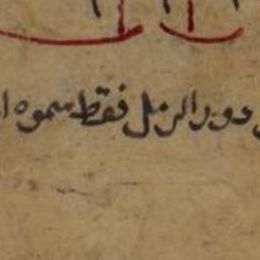 دور الرمل فقط سموه